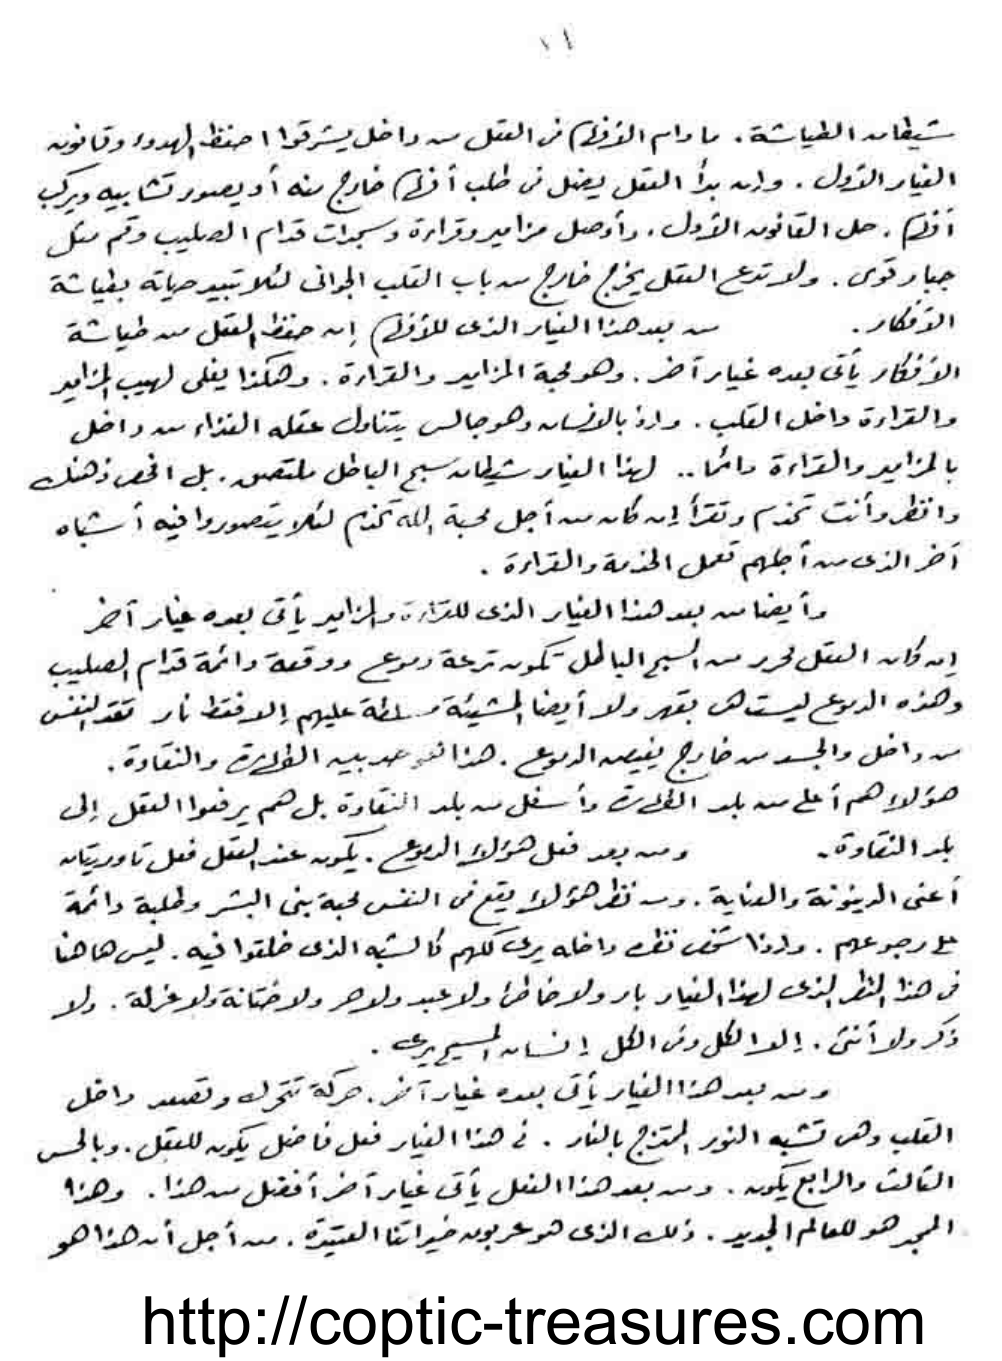 ١١
شيطان الطياشة. ما دام الأفكار في العقل من داخل يشرقوا احفظ الهدوء وقانون
الغيار الأول. وإن بدأ العقل يضل في طلب أفكار خارج منه أو يصور تشابيه ويركب
أفكار. حل القانون الأول. وأوصل مزامير وقراءة وسجدات قدام الصليب وقم مثل
جبار قوى. ولا تدع العقل يخرج خارج من باب القلب الجوانى لئلا تبيد حياته بطياشة
الأفكار. من بعد هذا الغيار الذى للأفكار إن حفظ العقل من طياشة
الأفكار يأتى بعده غيار آخر. وهو محبة المزامير والقراءة. وهكذا يغلى لهيب المزامير
والقراءة داخل القلب. وإذ بالإنسان وهو جالس يتناول عقله الغذاء من داخل
بالمزامير والقراءة دائما.. لهذا الغيار شيطان سبح الباطل ملتصق. بل افحص ذهنك
وانظر وأنت تخدم وتقرأ إن كان من أجل محبة الله تخدم لئلا يتصوروا فيه أشباه
أخر الذى من أجلهم تعمل الخدمة والقراءة.
وأيضا من بعد هذا الغيار الذى للقراءة والمزامير يأتى بعده غيار آخر
إن كان العقل تحرر من السبح الباطل تكون ترعة دموع ووقعة دائمة قدام الصليب
وهذه الدموع ليست هى بقهر ولا أيضا المشيئة مسلطة عليهم إلا فقط نار تقد النفس
من داخل والجسد من خارج يفيض الدموع. هذا بين والنقاوة.
هؤلاء هم أعلى من بلد وأسفل من بلد النقاوة بل هم يرفعوا العقل إلى
بلد النقاوة. ومن بعد فعل هؤلاء الدموع. يكون عند العقل فعل تاوريتان
أعنى الدينونة والعناية. ومن نظر هؤلاء يقع فى النفس محبة بنى البشر وطلبة دائمة
على رجوعهم. وإذا شخص نظره داخله يرى كلهم كالشبه الذى خلقوا فيه. ليس هاهنا
فى هذا النظر الذى لهذا الغيار بار ولا خاطئ ولا عبد ولا حر ولا ختانة ولا غرلة. ولا
ذكر ولا أنثى. إلا الكل وفى الكل إنسان المسيح يرى.
ومن بعد هذا الغيار يأتى بعده غيار آخر. حركة تتحرك وتصعد داخل
القلب وهى تشبه النور الممتزج بالنار. فى هذا الغيار فعل فاضل يكون للعقل. وبالحس
الثالث والرابع يكون. ومن بعد هذا الفعل يأتى غيار آخر أفضل من هذا. وهذا
المجد هو للعالم الجديد. ذلك الذى هو عربون خيراتنا العتيدة. من أجل أن هذا هو
http://coptic-treasures.com